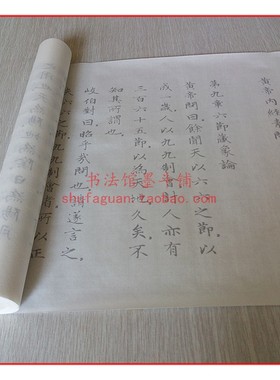 黄帝内經素問
第九章六節藏象論
黄帝問曰。餘聞天以六六之節。以
成一歲。人以九九制會。計人亦有
三百六十五節。以為天地。久矣。不
知其所謂也。
岐伯對曰。昭乎哉問也。請遂言之。
夫六六之節。九九制會者。所以正
书法馆墨香铺
shufaguan.taobao.com